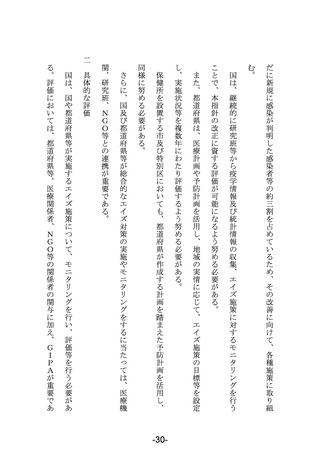 だに新規に感染が判明した感染者等の約三割を占めているため、その改善に向けて、各種施策に取り組
む。
国は、継続的に研究班等から疫学情報及び統計情報の収集、エイズ施策に対するモニタリングを行う
ことで、本指針の改正に資する評価が可能になるよう努める必要がある。
また、都道府県は、医療計画や予防計画を活用し、地域の実情に応じて、エイズ施策の目標等を設定
し、実施状況等を複数年にわたり評価するよう努める必要がある。
保健所を設置する市及び特別区においても、都道府県が作成する計画を踏まえた予防計画を活用し、
同様に努める必要がある。
さらに、国及び都道府県等が総合的なエイズ対策の実施やモニタリングをするに当たっては、医療機
関、研究班、NGO等との連携が重要である。
二 具体的な評価
国は、国や都道府県等が実施するエイズ施策について、モニタリングを行い、評価等を行う必要があ
る。評価においては、都道府県等、医療関係者、NGO等の関係者の関与に加え、GIPAが重要であ
-30-